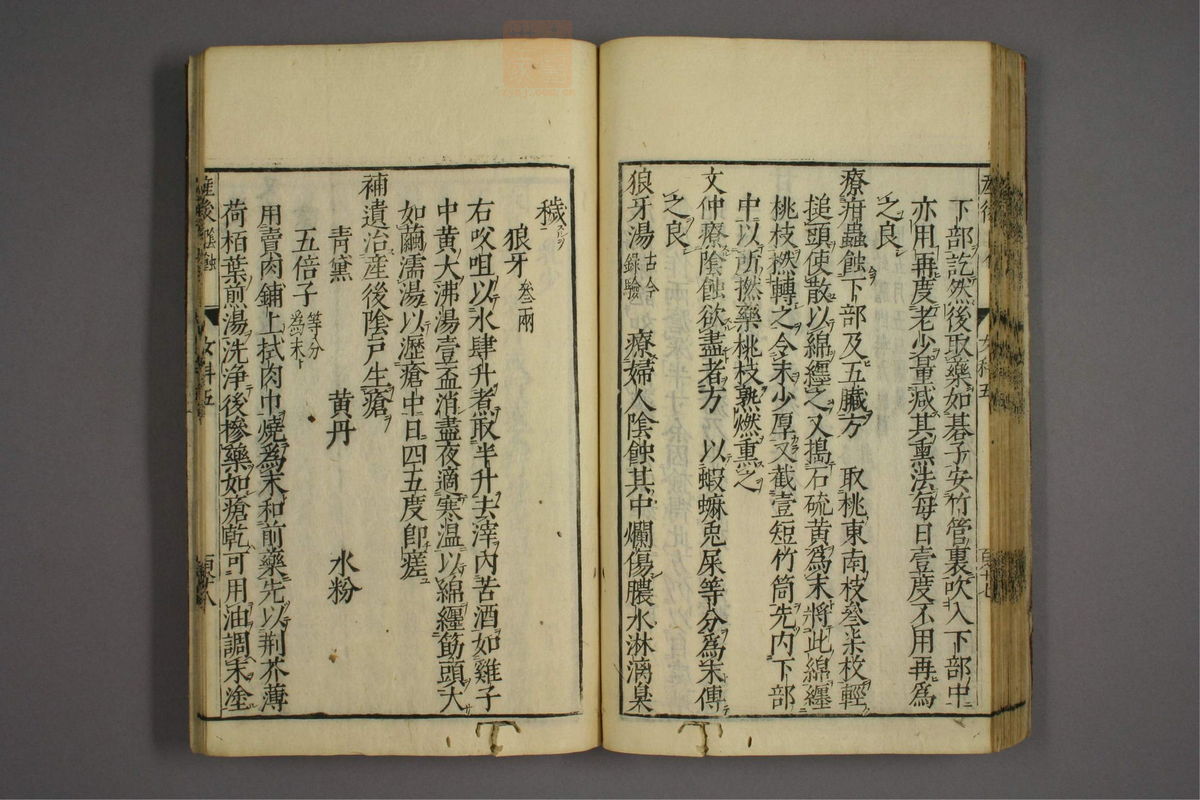 下部訖然後取藥如碁子安竹管裏吹入下部中
亦用再度老少量減其熏法每日壹度不用再為
之良
療疳蟲蝕下部及五臟方 取桃東南枝叄柒枚輕
搥頭使散以綿纒之又搗石硫黃為末將此綿纒
桃枝撚轉之令末少厚又截壹短竹筒先內下部
中以所撚藥桃枝熟燃熏之
文仲療陰蝕欲盡者方 以蝦蟆兎屎等分為末傅
之良
狼牙湯 古今錄驗 療婦人陰蝕其中爛傷膿水淋漓臭
穢
狼牙 叄兩
右㕮咀以水肆升煮取半升去滓內苦酒如雞子
中黃大沸湯壹盃消盡夜適寒温以綿纒筋頭大
如繭濡湯以瀝瘡中日四五度卽瘥
補遺治產後陰戶生瘡
青黛 黃丹 水粉
五倍子 等分為末
用賣肉鋪上拭肉巾燒為末和前藥先以荆芥薄
荷栢葉煎湯洗淨後摻藥如瘡乾可用油調末塗
產後陰蝕 女科五 百十八